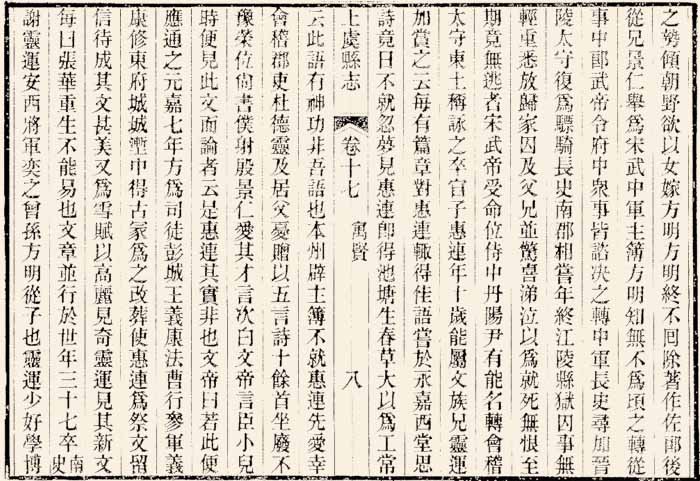 之勢傾朝野欲以女嫁方明方明終不囘除著作佐郎後
從兄景仁舉爲宋武中軍主簿方明知無不爲頃之轉從
事中郎武帝令府中衆事皆諮決之轉中軍長史尋加晉
陵太守復爲驃騎長史南郡相嘗年終江陵縣獄囚事無
輕重悉放歸家囚及父兄並驚喜涕泣以爲就死無恨至
期竟無逃者宋武帝受命位侍中丹陽尹有能名轉會稽
太守東土稱詠之卒官子惠連年十歲能屬文族兄靈運
加賞之云每有篇章對惠連輙得佳語嘗於永嘉西堂思
詩竟日不就忽夢見惠連卽得池塘生春草大以爲工常
上虞縣志 卷十七 寓賢 八
云此語有神功非吾語也本州辟主簿不就惠連先愛幸
會稽郡吏杜德靈及居父憂贈以五言詩十餘首坐廢不
豫榮位尙書僕射殷景仁愛其才言次白文帝言臣小兒
時便見此文而論者云是惠連其實非也文帝曰若此便
應通之元嘉七年方爲司徒彭城王義康法曹行參軍義
康修東府城城塹中得古冢爲之改葬使惠連爲祭文留
信待成其文甚美又爲雪賦以高麗見奇靈運見其新文
每曰張華重生不能易也文章並行於世年三十七卒南史
謝靈運安西將軍奕之曾孫方明從子也靈運少好學博